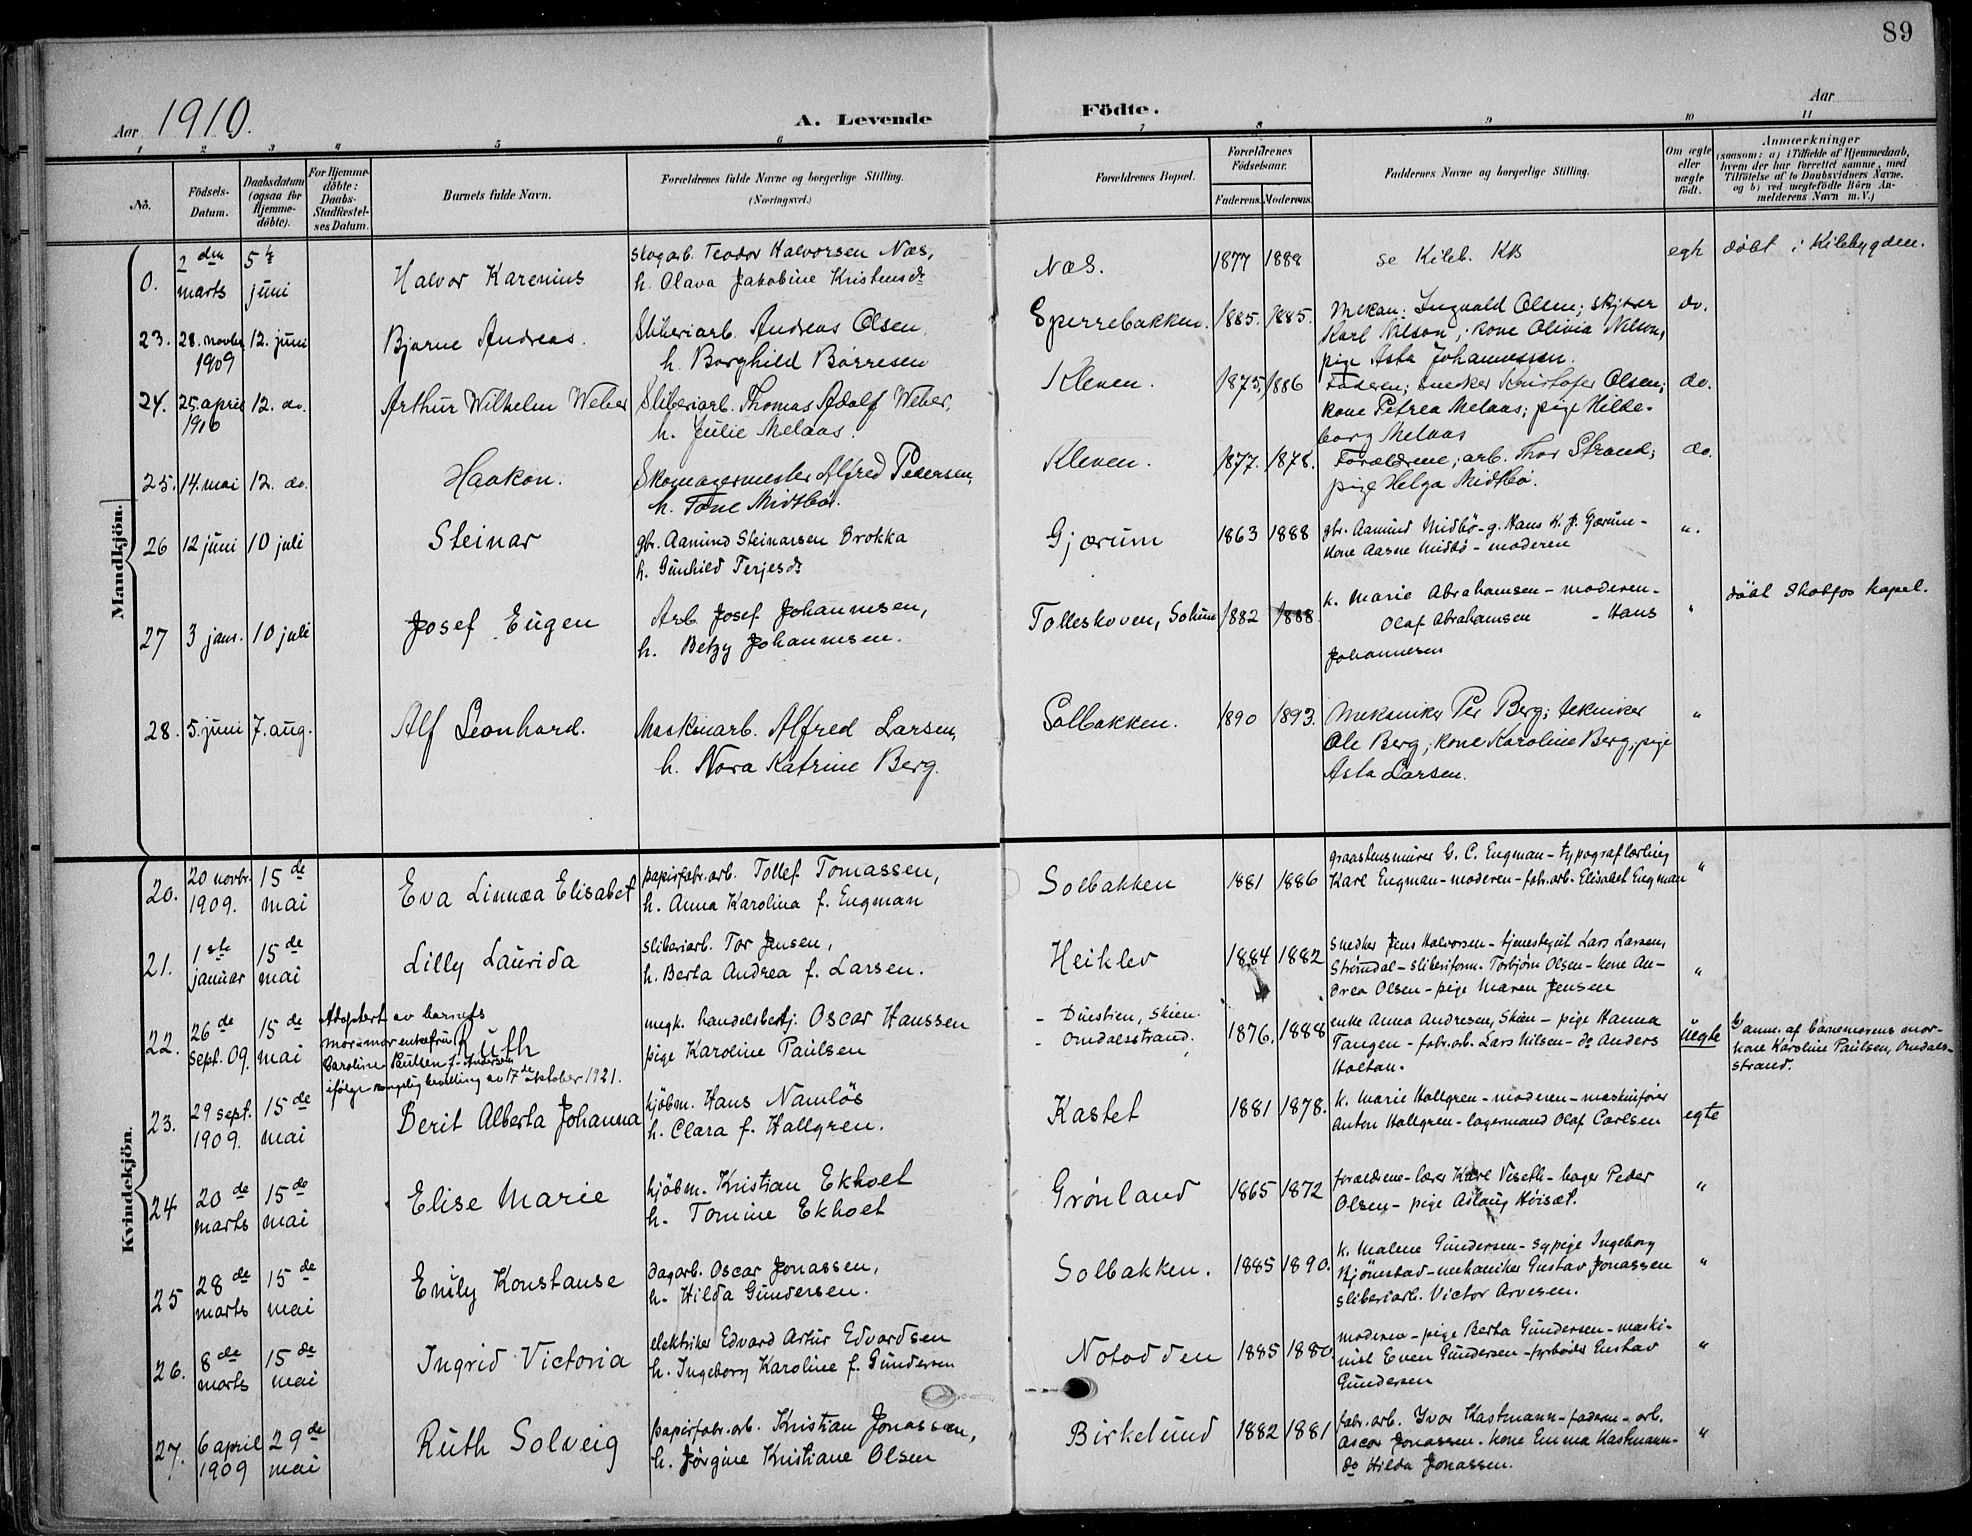 89
Aar 1910.
A. Levende
Födte.
Aar
1 2 3 4 5 6 7 8 9 10 11
No.
Födsels-
Datum.
Daabsdatum
(ogsaa for
Hjemme-
döbte).
For Hjemme-
döbte:
Daabs-
Stadfæstel-
ses Datum.
Barnets fulde Navn.
Forældrenes fulde Navne og borgerlige Stilling.
(Næringsvei.)
Forældrenes Bopæl.
Forældrenes
Födselsaar.
Faderens. Moderens.
Faddernes Navne og borgerlige Stilling.
Om ægte
eller
uægte
födt.
Anmærkninger
(saasom: a) i Tilfælde af Hjemmedaab,
hvem der har forrettet samme, med
Tilföielse af to Daabsvidners Navne,
og b) ved uægtefödte Börn An-
melderens Navn m. V.)
Mandkjön.
0.
2 den
marts
5 te
juni
Halvor Karenius
skogarb. Teodor Halvorsen Næs,
h. Olava Jakobine Kristensdr
Næs.
1877 1888
se Kileb. KB
egte
døbt i Kilebygden.
23.
28. novbr
1909
12. juni
Bjarne Andreas.
Sliberiarb. Andreas Olsen
h. Borghild Börresen
Sperrebakken.
1885. 1885.
Mekan: Ingvald Olsen; skjper
Karl Nilson; kone Olivia Nilson,
pige Asta Johannessen.
do.
24.
25. april
1910
12. do.
Arthur Wilhelm Weber
Sliberiarb. Thomas Adolf Weber,
h. Julie Melaas.
Kleven.
1875, 1886
Faderen; snedker Kristofer Olsen;
kone Petrea Melaas; pige Hilde-
borg Melaas
do.
25.
14. mai
12. do.
Haakon.
Skomagermester Alfred Pedersen,
h. Tone Midtbö.
Kleven.
1877. 1878.
Forældrene; arb. Thor Strand;
pige Helga Midtbö.
do.
26
12 juni
10 juli
Steinar
gbr. Aamund Steinarsen Brokka
h. Gunhild Terjesdr
Gjærum
1863 1888
gbr. Aamund Midbö - g. Hans K. J. Gjærum -
kone Aasne Midbö - moderen
".
27
3 janr.
10 juli
Josef Eugen
Arb Josef Johannesen,
h. Betzy Johannesen.
Tolleskoven, Solum
1882 1888
k. Marie Abrahamsen - moderen -
Olaf Abrahamsen - Hans
Johannesen
"
döbt Skotfos kapel.
28.
5. juni
7. aug.
Alf Leonhard.
Maskinarb. Alfred Larsen,
h. Nora Katrine Berg.
Solbakken.
1890 1893.
Mekaniker Per Berg; tekniker
Ole Berg; kone Karoline Berg; pige
Asta Larsen.
"
Kvindekjön.
20.
20 novbr.
1909.
15 de
mai
Eva Linnæa Elisabet
papirfabr.arb. Tollef Tomassen,
h. Anna Karolina f. Engman
Solbakken
1881 1886
graastensmurer G. C. Engman - typograflærling
Karl Engman - moderen - fabr.arb. Elisabet Engman
"
21.
1 ste
januar
15 de
mai
Lilly Laurida
sliberiarb. Tor Jensen,
h. Berta Andrea f. Larsen.
Heiklev
1884 1882
Snedker Jens Halvorsen - tjenestegut Lars Larsen,
Strömdal - sliberiform. Torbjörn Olsen - kone An-
drea Olsen - pige Maren Jensen
"
22.
26 de
sept. 09.
15 de
mai
Adoptert av barnets
mormor enkefru
Caroline Paulsen f. Andersen
ifølge kongelig bevilling av 17 de oktober 1921.
Ruth
megk. handelsbetj. Oscar Hanssen
pige Karoline Paulsen
- Duestien, Skien.
- Omdalsstrand.
1876. 1888
enke Anna Andresen, Skien - pige Hanna
Tangen - fabr.arb. Lars Nilsen - do Anders
Holtan.
uegte
b) anm. af barnemorens mor -
kone Karoline Paulsen, Omdals-
strand.
23.
29 sept.
1909.
15 de
mai
Berit Alberta Johanna
kjöbm. Hans Namlös
h. Clara f. Hallgren.
Kastet
1881 1878.
k. Marie Hallgren - moderen - maskinfører
Anton Hallgren - lagermand Olaf Carlsen
egte
24
20 de
marts
15 de
mai
Elise Marie
kjöbm. Kristian Ekholt
h. Tomine Ekholt
Grönland
1865 1872
forældrene - lærer Karl Viseth - bager Peder
Olsen - pige Aslaug Höisæt.
"
25
28 de
marts
15 de
mai
Emily Konstanse
dagarb. Oscar Jonassen,
h. Hilda Gundersen.
Solbakken.
1885 1890.
k. Malene Gundersen - sypige Ingeborg
Bjönstad - mekaniker Gustav Jonassen
sliberiarb. Victor Arvesen.
"
26.
8 de
marts
15 de
mai
Ingrid Victoria
elektriker Edvard Artur Edvardsen
h. Ingeborg Karoline f. Gundersen
Notodden
1885 1880.
moderen - pige Berta Gundersen - maski-
nist Even Gundersen - fyrbøder Gustav
Gundersen
"
27.
6 april
1909
29 de
mai
Ruth Solveig
papirfabr.arb. Kristian Jonassen,
h. Jörgine Kristiane Olsen
Birkelund
1882 1881
fabr.arb. Ivar Kastmann - faderen - arb.
Oscar Jonassen. kone Emma Kastmann -
do Hilda Jonassen.
"